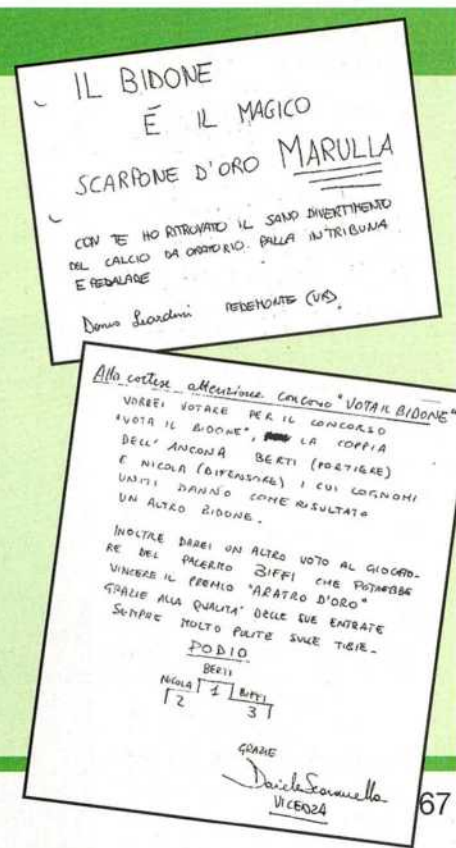 IL BIDONE
É IL MAGICO
SCARPONE D'ORO MARULLA
CON TE HO RITROVATO IL SANO DIVERTIMENTO
DEL CALCIO DA ORATORIO. PALLA IN TRIBUNA
E PEDALARE
Denis Leardini PEDEMONTE (VR)
Alla cortese attenzione concorso "VOTA IL BIDONE"
VORREI VOTARE PER IL CONCORSO
"VOTA IL BIDONE", LA COPPIA
DELL' ANCONA BERTI (PORTIERE)
E NICOLA (DIFENSORE) I CUI COGNOMI
UNITI DANNO COME RISULTATO
UN ALTRO BIDONE.
INOLTRE DAREI UN ALTRO VOTO AL GIOCATO-
RE DEL PALERMO BIFFI CHE POTREBBE
VINCERE IL PREMIO "ARATRO D'ORO"
GRAZIE ALLA QUALITA' DELLE SUE ENTRATE
SEMPRE MOLTO PULITE SULLE TIBIE.
PODIO
BERTI
NICOLA 1 BIFFI
2 3
GRAZIE
Daniele
VICENZA
67